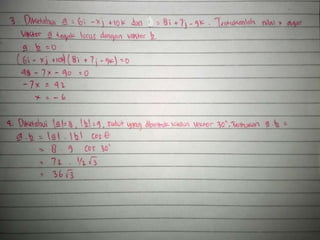 3. Diketahui a = 6i - xj + 10k dan = 8i + 7j - 9k. Tentukanlah nilai x agar
vektor a tegak lurus dengan vektor b
a . b = 0
(6i - xj + 10k) (8i + 7j - 9k) = 0
48 - 7x - 90 = 0
-7x = 42
x = -6
4. Diketahui |a| = 8, |b| = 9, sudut yang dibentuk vektor 30°, Tentukan a . b =
a . b = |a| . |b| cos θ
= 8 . 9 . cos 30°
= 72 . 1/2 √3
= 36 √3